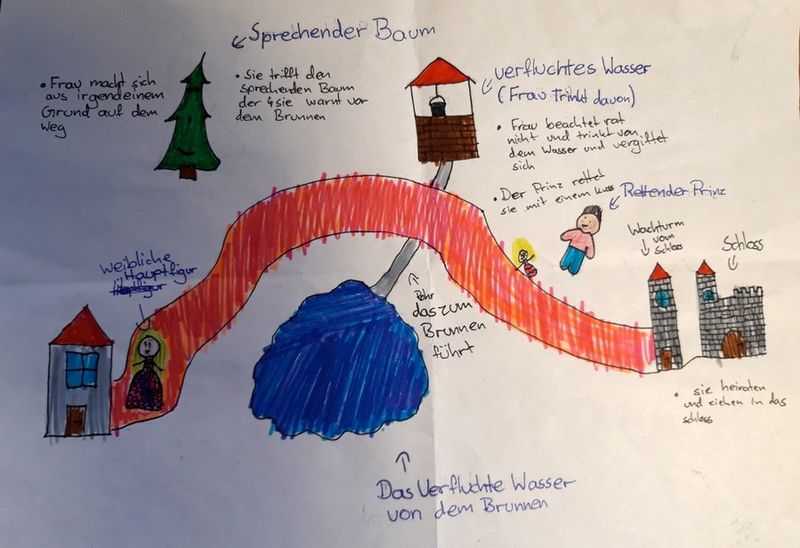 Sprechender Baum
• Frau macht sich
aus irgendeinem
Grund auf dem
weg
• Sie trifft den
sprechenden Baum
der sie warnt vor
dem Brunnen
verfluchtes Wasser
(Frau Trinkt davon)
• Frau beachtet rat
nicht und trinkt von
dem Wasser und vergiftet
sich
• Der Prinz rettet
sie mit einem kuss
Rettender Prinz
Wachturm
vom
Schloss
Schloss
Weibliche
Hauptfigur
Rohr
das zum
Brunnen
führt
• sie heiraten
und ziehen in das
schloss
Das Verfluchte Wasser
von dem Brunnen